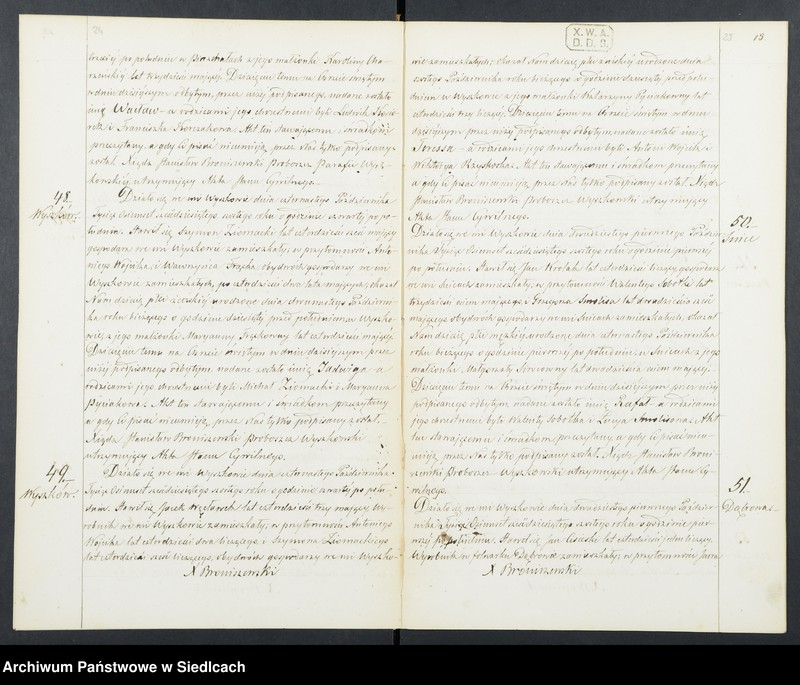 trzeciej po południu w z jego małżonki Karoliny
lat trzydzieści mającej. Dziecięciu temu na Chrzcie świętym
w dniu dzisiejszym odbytym, przez niżej podpisanego, nadane zostało
imię Wacław – a rodzicami jego chrzestnemi byli Ludwik
i Franciszka Akt ten stawającemu i świadkom
przeczytany, a gdy ci pisać nieumieją przez Nas tylko podpisany
został. Xiądz Stanisław Broniszewski Proboszcz Parafii Wysz-
kowskiej utrzymujący Akta Stanu Cywilnego.
48.
Wyszków.
Działo się we wsi Wyszkowie dnia czternastego Października
Tysiąc Ośmset sześćdziesiątego szóstego roku o godzinie czwartej po po-
łudniu. Stawił się Szymon Ziomacki lat czterdzieści sześć mający
gospodarz we wsi Wyszkowie zamieszkały, w przytomności Anto-
niego Wójcika i Wawrzyńca obydwóch gospodarzy we wsi
Wyszkowie zamieszkałych, po czterdzieści dwa lata mających, i okazał
Nam dziecię płci żeńskiej urodzone dnia dwunastego Paździer-
nika roku bieżącego o godzinie dziesiątej przed południem w Wyszko-
wie, z jego małżonki Maryanny lat czterdzieści mającej.
Dziecięciu temu na Chrzcie świętym w dniu dzisiejszym przez
niżej podpisanego odbytym, nadane zostało imię Jadwiga – a
rodzicami jego chrzestnemi byli Michał Ziomacki i Maryanna
Akt ten stawającemu i świadkom przeczytany
a gdy ci pisać nieumieją, przez Nas tylko podpisany został.
Xiądz Stanisław Broniszewski Proboszcz Wyszkowski
utrzymujący Akta Stanu Cywilnego.
49.
Wyszków.
Działo się we wsi Wyszkowie dnia czternastego Października
Tysiąc Ośmset sześćdziesiątego szóstego roku o godzinie czwartej po połu-
dniu. Stawił się Jacek lat czterdzieści trzy mający Wy-
robnik we wsi Wyszkowie zamieszkały, w przytomności Antoniego
Wójcika lat czterdzieści dwa liczącego i Szymona Ziomackiego
lat czterdzieści sześć liczącego, obydwóch gospodarzy we wsi Wyszko-
X Broniszewski
X. W. A.
D. D. S.
13
wie zamieszkałych, okazał Nam dziecię płci żeńskiej urodzone dnia
szóstego Października roku bieżącego o godzinie dziesiątej przed połu-
dniem w Wyszkowie z jego małżonki Katarzyny lat
czterdzieści trzy liczącej. Dziecięciu temu na Chrzcie świętym w dniu
dzisiejszym przez niżej podpisanego odbytym, nadane zostało imię
Teressa – a rodzicami jego chrzestnemi byli Antoni Wójcik i
Wiktorya Akt ten stawającemu i świadkom przeczytany
a gdy ci pisać nieumieją, przez Nas tylko podpisany został. Xiądz
Stanisław Broniszewski Proboszcz Wyszkowski utrzymujący
Akta Stanu Cywilnego.
50.
Działo się we wsi Wyszkowie dnia dwudziestego pierwszego Paździer-
nika Tysiąc Ośmset sześćdziesiątego szóstego roku o godzinie pierwszej
po południu. Stawił się Jan lat czterdzieści liczący, gospodarz
we wsi zamieszkały, w przytomności Walentego Sobotki lat
trzydzieści ośm mającego i Grzegorza lat dwadzieścia sześć
mającego obydwóch gospodarzy we wsi zamieszkałych, okazał
Nam dziecię płci męskiej, urodzone dnia czternastego Października
roku bieżącego o godzinie pierwszej po południu w z jego
małżonki Małgorzaty lat dwadzieścia ośm mającej.
Dziecięciu temu na Chrzcie świętym w dniu dzisiejszym przez niżej
podpisanego odbytym, nadane zostało imię Rafał a rodzicami
jego chrzestnemi byli Walenty Sobotka i Akt
ten stawającemu i świadkom przeczytany, a gdy ci pisać nieu-
mieją przez Nas tylko podpisany został. Xiądz Stanisław Broni-
szewski Proboszcz Wyszkowski utrzymujący Akta Stanu Cy-
wilnego.
51.
Dąbrowa.
Działo się we wsi Wyszkowie dnia dwudziestego pierwszego Paździer-
nika Tysiąc Ośmset sześćdziesiątego szóstego roku o godzinie pier-
wszej po południu. Stawił się Jan lat czterdzieści jeden liczący,
Wyrobnik w folwarku Dąbrowie zamieszkały, w przytomności Jana
X Broniszewski
Archiwum Państwowe w Siedlcach